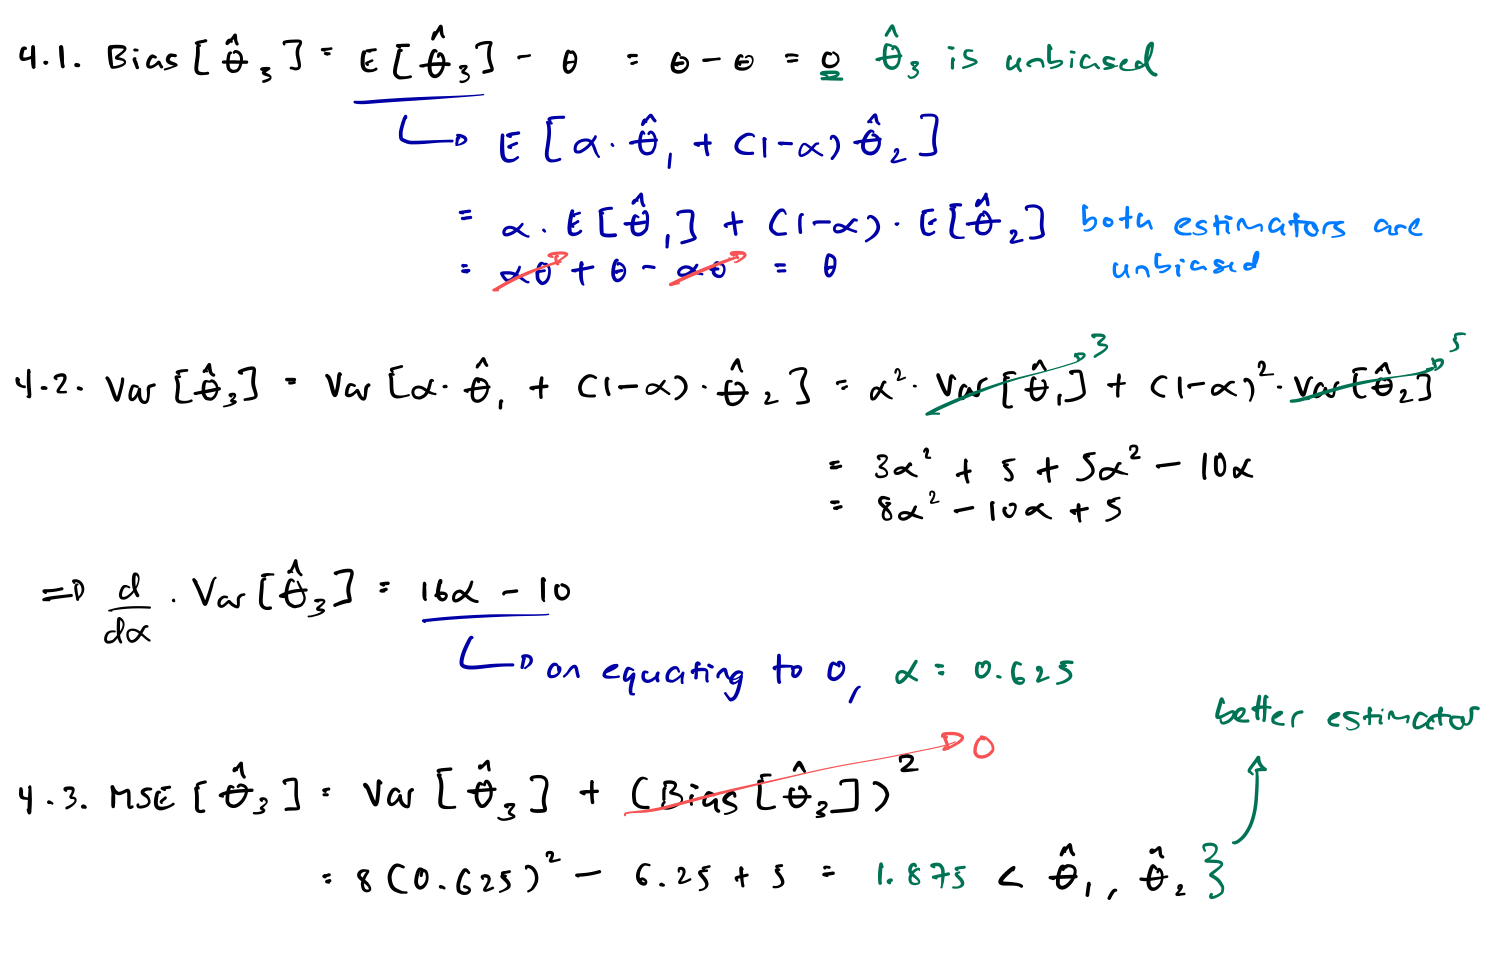 4.1. Bias[θ̂₃] = E[θ̂₃] - θ = θ - θ = 0 θ̂₃ is unbiased
E[α·θ̂₁ + (1-α)θ̂₂]
= α·E[θ̂₁] + (1-α)·E[θ̂₂] both estimators are
= αθ + θ - αθ = θ unbiased
4.2. Var[θ̂₃] = Var[α·θ̂₁ + (1-α)·θ̂₂] = α²·Var[θ̂₁] 3 + (1-α)²·Var[θ̂₂] 5
= 3α² + 5 + 5α² - 10α
= 8α² - 10α + 5
⇒ d/dα · Var[θ̂₃] = 16α - 10
on equating to 0, α = 0.625
better estimator
4.3. MSE[θ̂₃] = Var[θ̂₃] + (Bias[θ̂₃])² 0
= 8(0.625)² - 6.25 + 5 = 1.875 < θ̂₁, θ̂₂ }